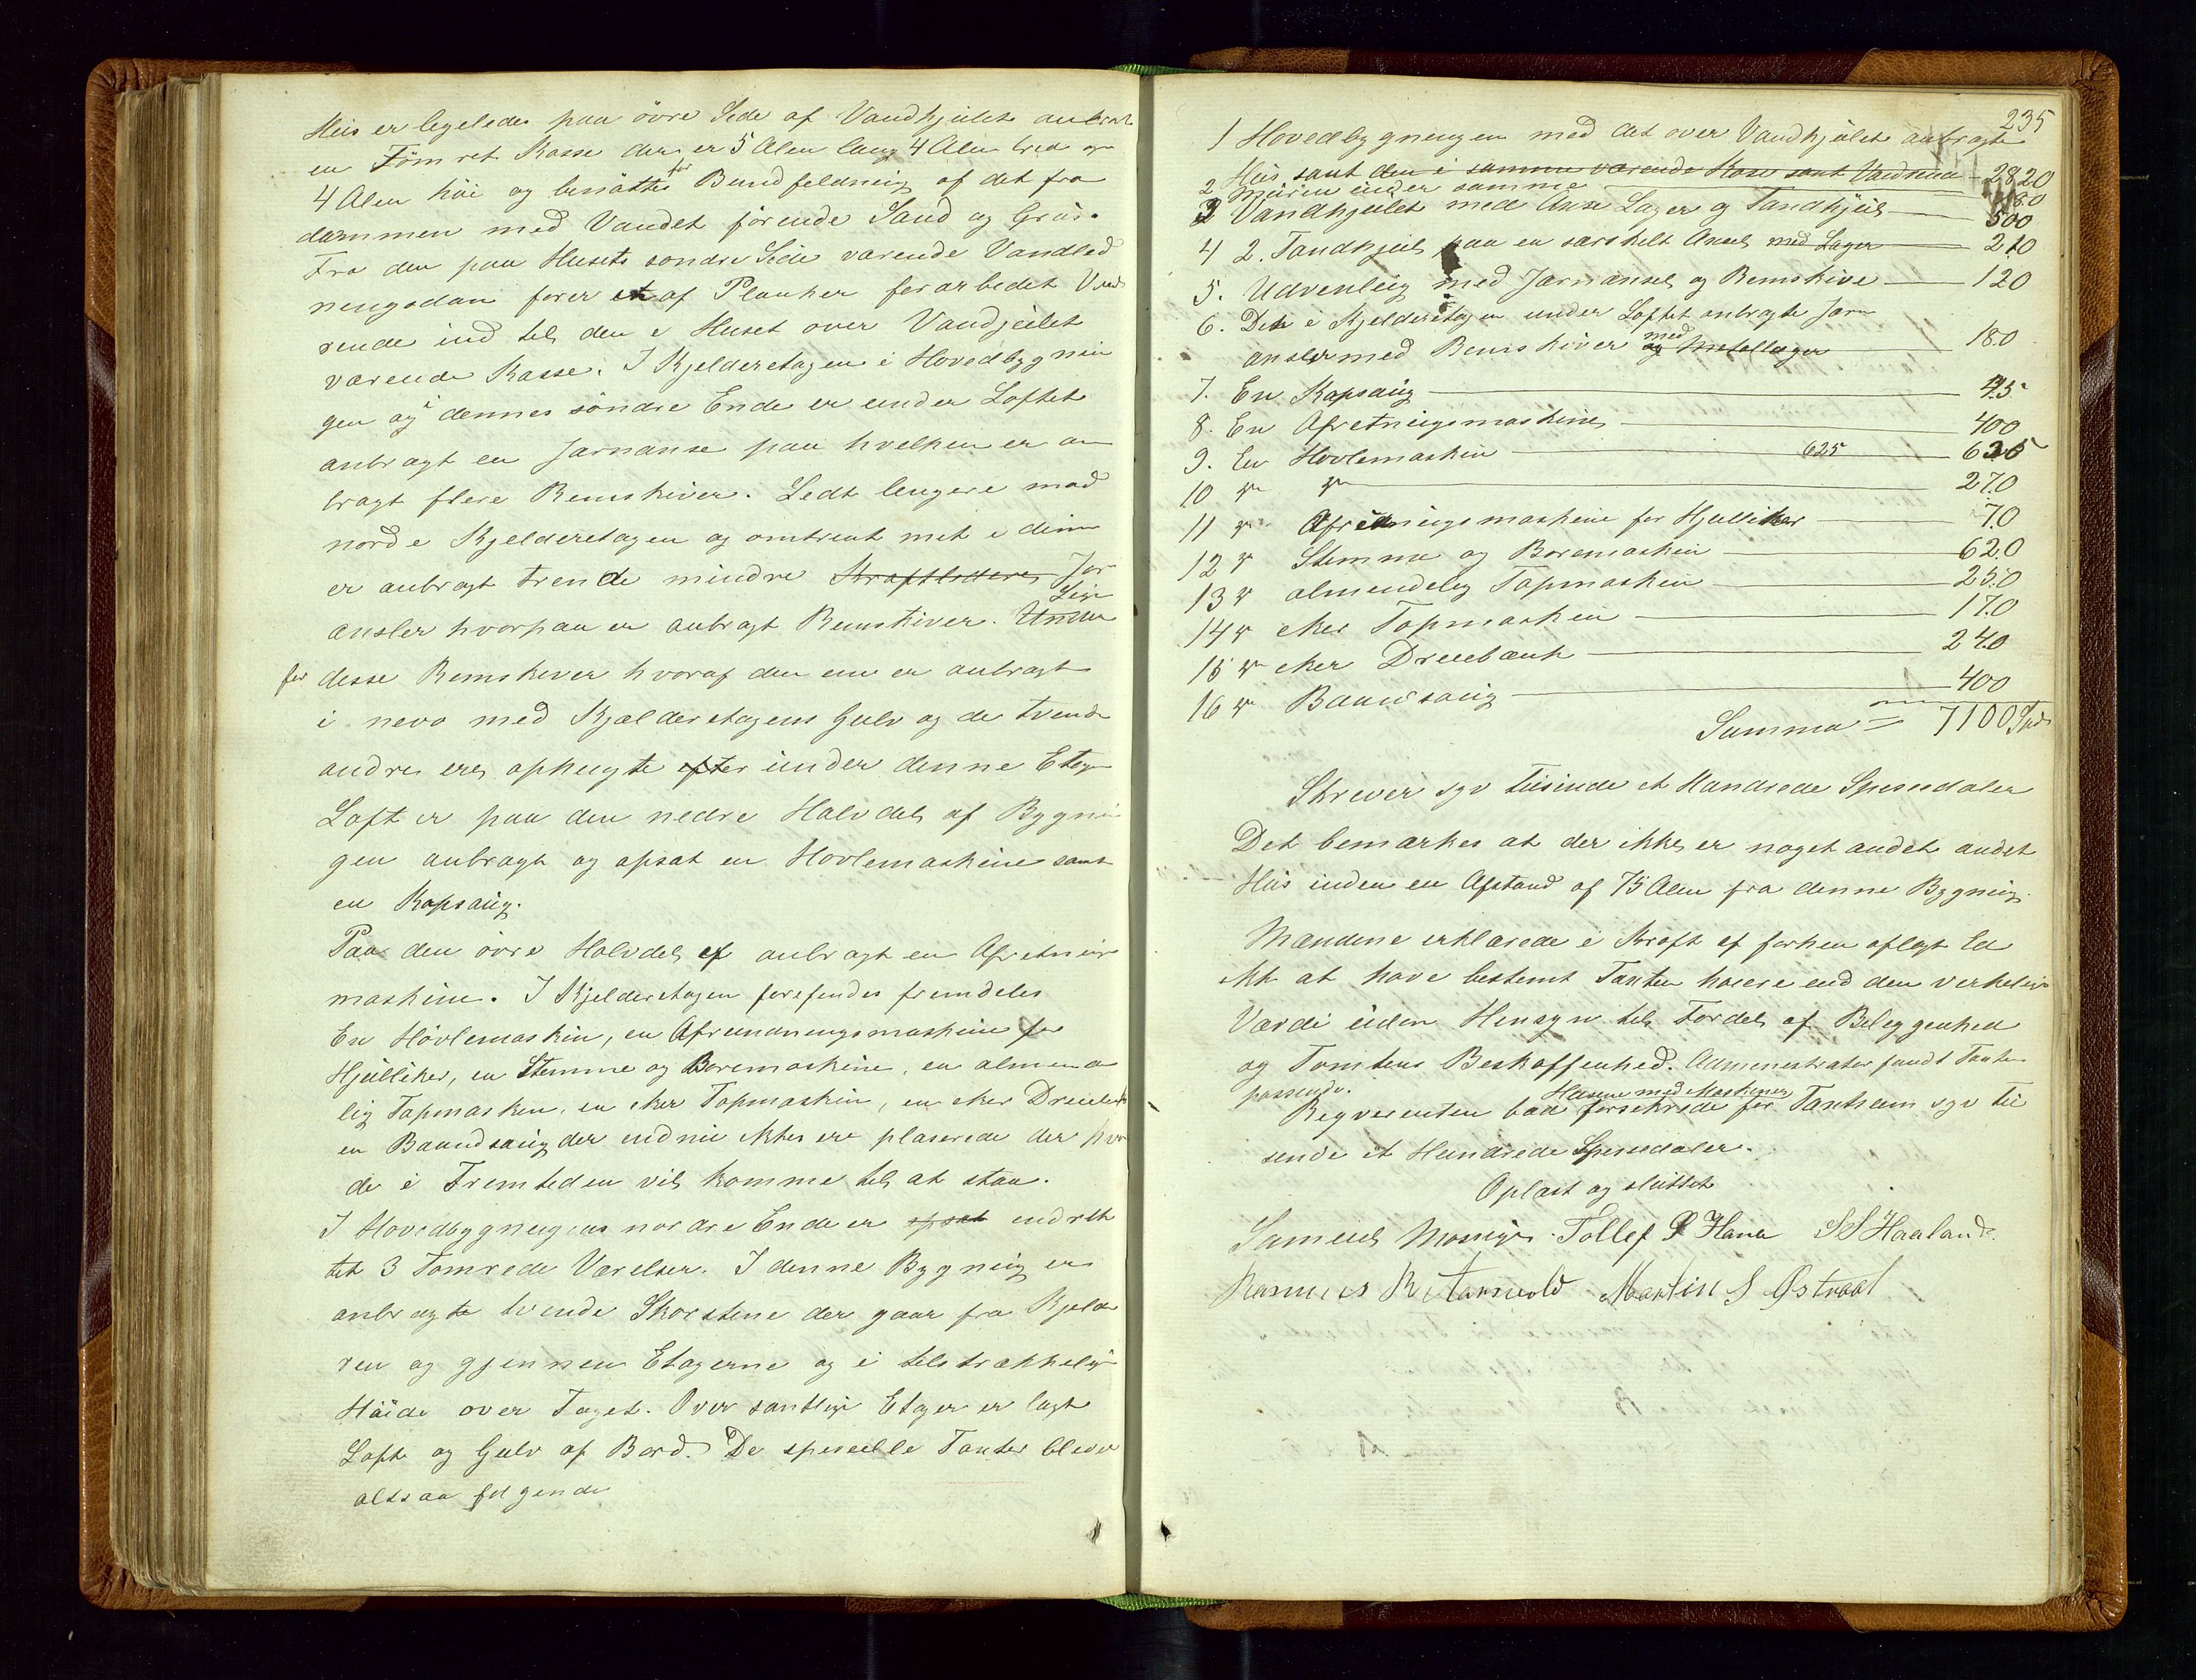 Huis er legeledes paa övre Side af Vandhjulet anbrat
en Tömret Kasse der er 5 Alen lang 4 Alen bred og
4 Alen höi og benöttes for Bundfeldning af det fra
dammen med Vandet förende Sand og Gruus.
Fra den paa Husets sondre Side værende Vandled
nengsdam förer et af Planker forarbedet Vand
rende ind til den i Huset over Vandjulet
værende Kasse. I Kjelderetagen i Hovedbygnin
gen og dennes söndre Ende er under Loftet
anbragt en Jarnanse paa hvelken er an
bragt flere Remskiver. Ledt lengere mod
nord i Kjelderetagen og omtrent met i dinne
er anbragt trende mindre Jar
ansler hvorpaa er anbragt Remskiver. Lige
for desse Remskiver hvoraf den ene er anbragt
i nevo med Kjælderetagens Gulv og de tvende
andre ere ophengte under denne Etage
Loft er paa den nedre Halvdel af Bygni
gen anbragt og opsat en Hovlemaskine samt
en Kapsaug.
Paa den övre Halvdel er anbragt en Afretning
maskine. I Kjelderetagen forefendes fremdeles
En Hövlemaskin, en Afrundningsmaskine for
Hjulliker, en Stemme og Boremaskine, en almende
lig Tapmasken, en eker Tapmaskin, en eker Dreieb
en Baandsaug der endnu ikke ere plaserede der hvor
de i Fremteden vil komme til at staa.
I Hovedbygnengens nordre Ende er opsat endrett
tet 3 Tomrede Værelser. I denne Bygning er
anbragte tvende Skorstene der gaar fra Kjelde
ren og gjennem Etagerne og i telstrækkelig
Höide over Taget. Over samtlige Etager er lagt
Loft og Gulv af Bord. De spesielle Taxter blever
altsaa følgende
235
1 Hovedbygnengen med det over Vandhjulet anbragte
Huis samt den i samme værende Kasse samt Vandrenn 2820
2 Muren under samme 180
3 Vandhjulet med Anse Lager og Tandhjul 500
4 2. Tandhjul paa en særskelt Ansel med Lager 210
5. Udvenleig med Jarnansel og Remskive 120
6. De i Kjelderetagen under Loftet anbragte Jarn
ansler med Remskiver med og Metallager 180
7. En Kapsaug 45
8. En Afretningsmaskine 400
9. En Hovlemaskin 625 625
10 " " 270
11 " Afrundningsmaskine for Hjulliker 70
12 " Stemme og Boremaskin 620
13 " almendelig Tapmaskin 250
14 " eker Tapmaskin 170
15 " eker Dreiebænk 240
16 " Baandsaug 400
Summa = 7100 Spd
Skrever syv tusinde et Hundrede Spesiedaler
Det bemærkes at der ikke er noget andet andet
Huis inden en Afstand af 75 Alen fra denne Bygning.
Mændene erklærede i Kraft af forhen aflagt Ed
ikke at have bestemt Taxten høiere end den verkelige
Værdi uden Hensyn til Fordel af Beleggenhed
og Tomtens Beskaffenhed. Admenestrator fandt Taxten
passende.
Husene med Maskiner
Reqverenten bad forsekrede for Taxtsum syv tu
sende et Hundrede Spesiedaler.
Oplæst og sluttet
Samuel Mossige Tollef P Hana S S Haaland
Rasmus R Aarsvold Martin S Østraat